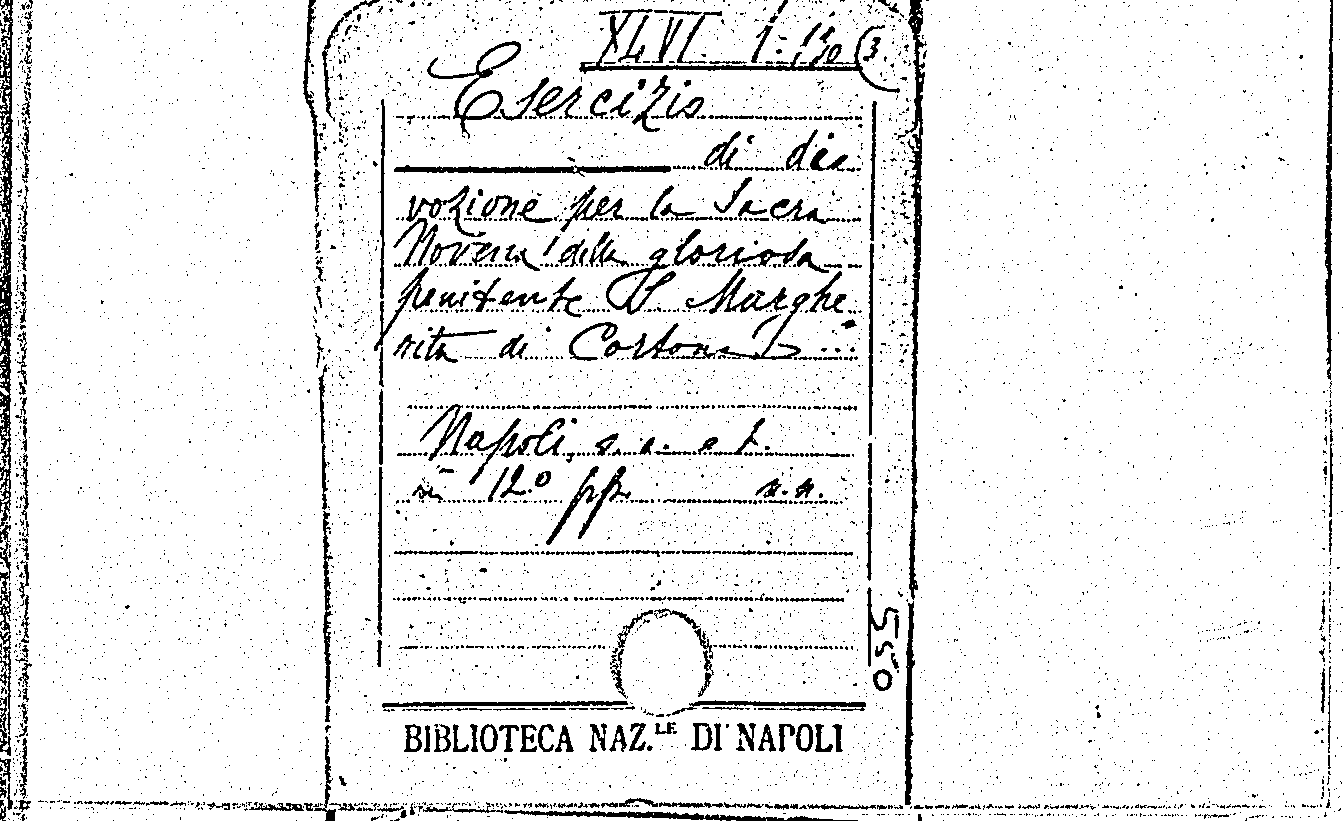 XLVI
Esercizio
di di
vozione per la Sacra
Novena della gloriosa
penitente S. Marghe
rita di Cortona ...
Napoli, s. a. e t.
in 12º pp. n.n.
BIBLIOTECA NAZ.LE DI NAPOLI
055